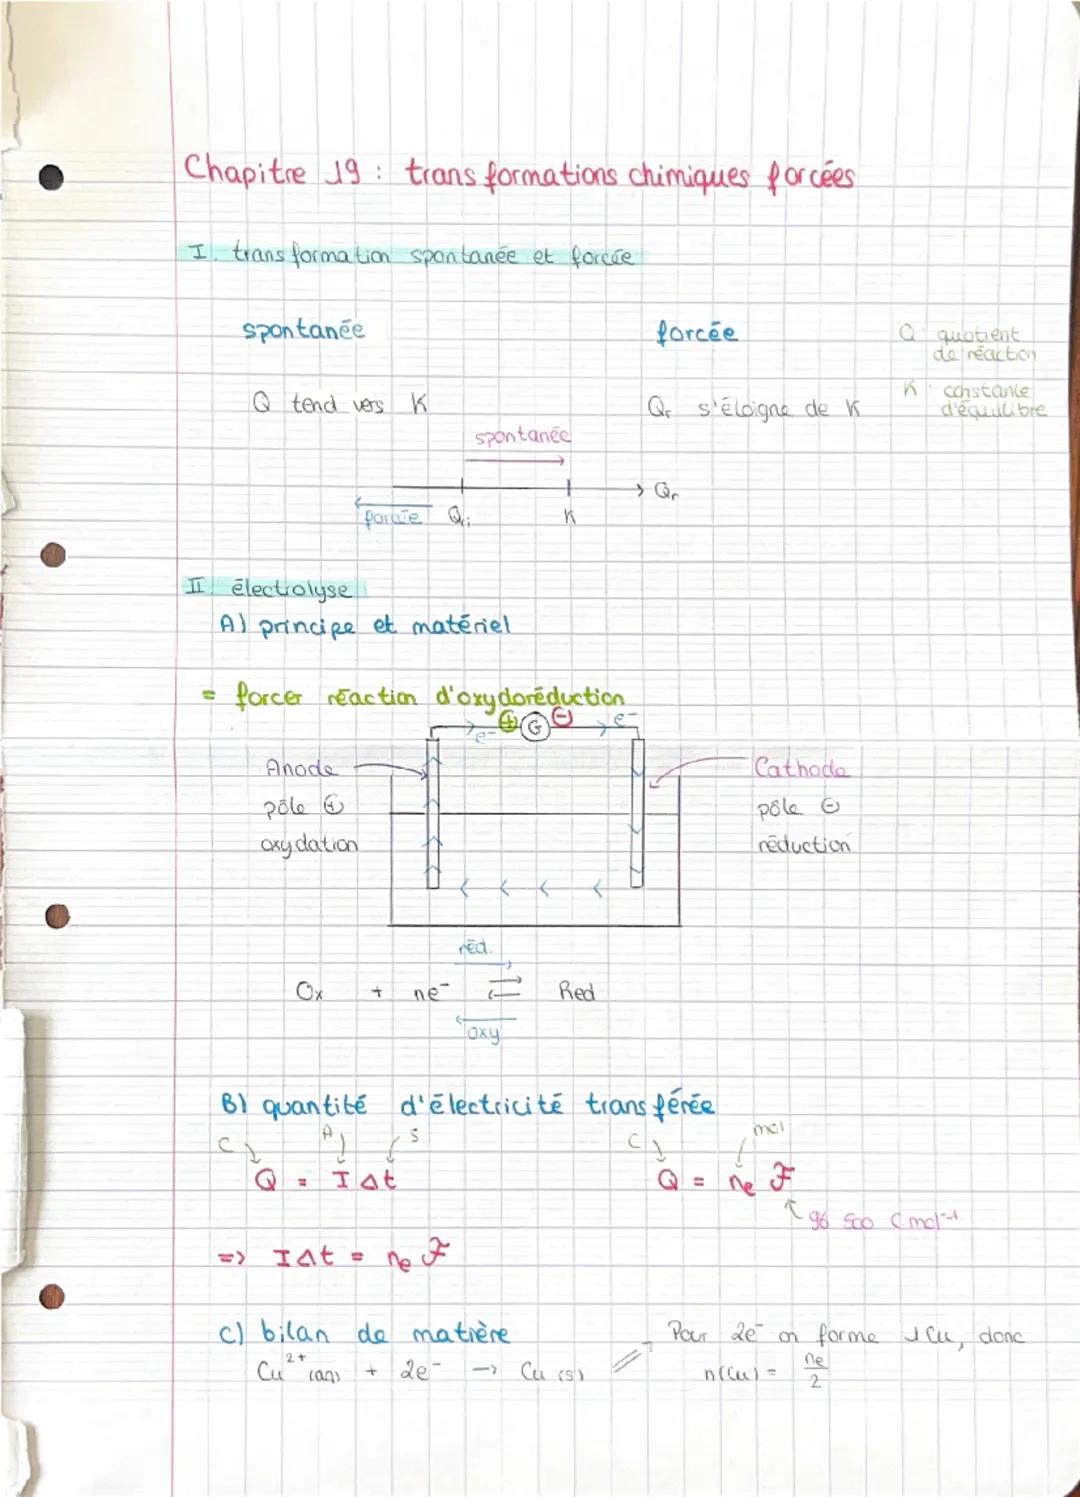 Chapitre 19 : transformations chimiques forcées
I. transformation spontanée et forcée
spontanée
forcée
Q quotient de réaction
K constante d'équilibre
Q tend vers K
Qr s'éloigne de K
spontanée
forcée
Qri
K
Qr
II électrolyse
A) principe et matériel
= forcer réaction d'oxydoréduction
e- + G - e-
Anode
pôle +
oxydation
Cathode
pôle -
réduction
réd.
Ox + ne- ⇌ Red
oxy
B) quantité d'électricité transférée
C A s
Q = I Δt
C mol
Q = ne F
96 500 C.mol-1
=> IΔt = ne F
C) bilan de matière
Cu2+ (aq) + 2e- → Cu (s)
Pour 2e- on forme 1 Cu, donc
n(Cu) = ne/2